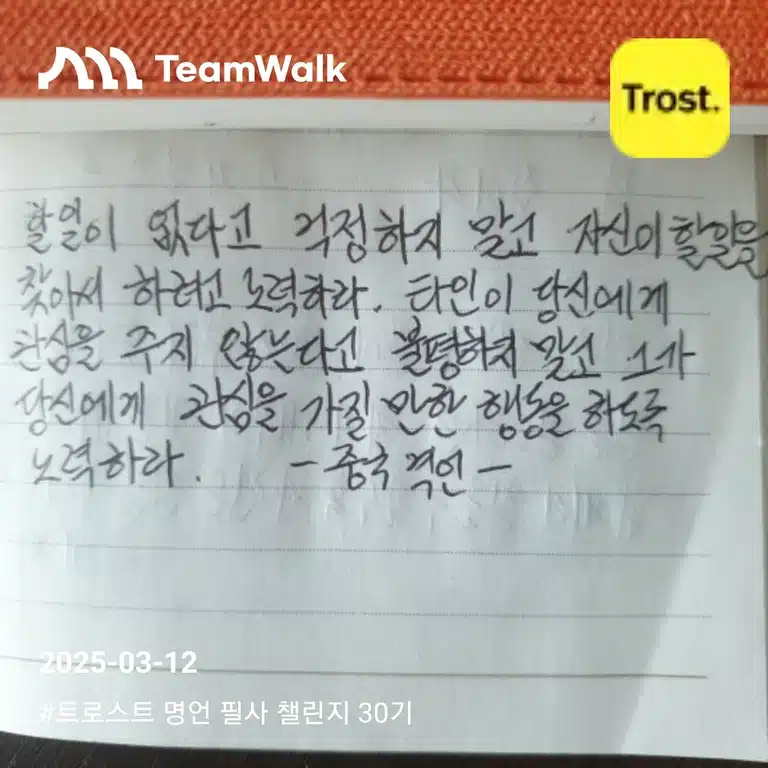 TeamWalk
Trost.
할일이 없다고 걱정하지 말고 자신이 할일을
찾아서 하려고 노력하라. 타인이 당신에게
관심을 주지 않는다고 불평하지 말고 그가
당신에게 관심을 가질 만한 행동을 하도록
노력하라. - 중국 격언 -
2025-03-12
#트로스트 명언 필사 챌린지 30기